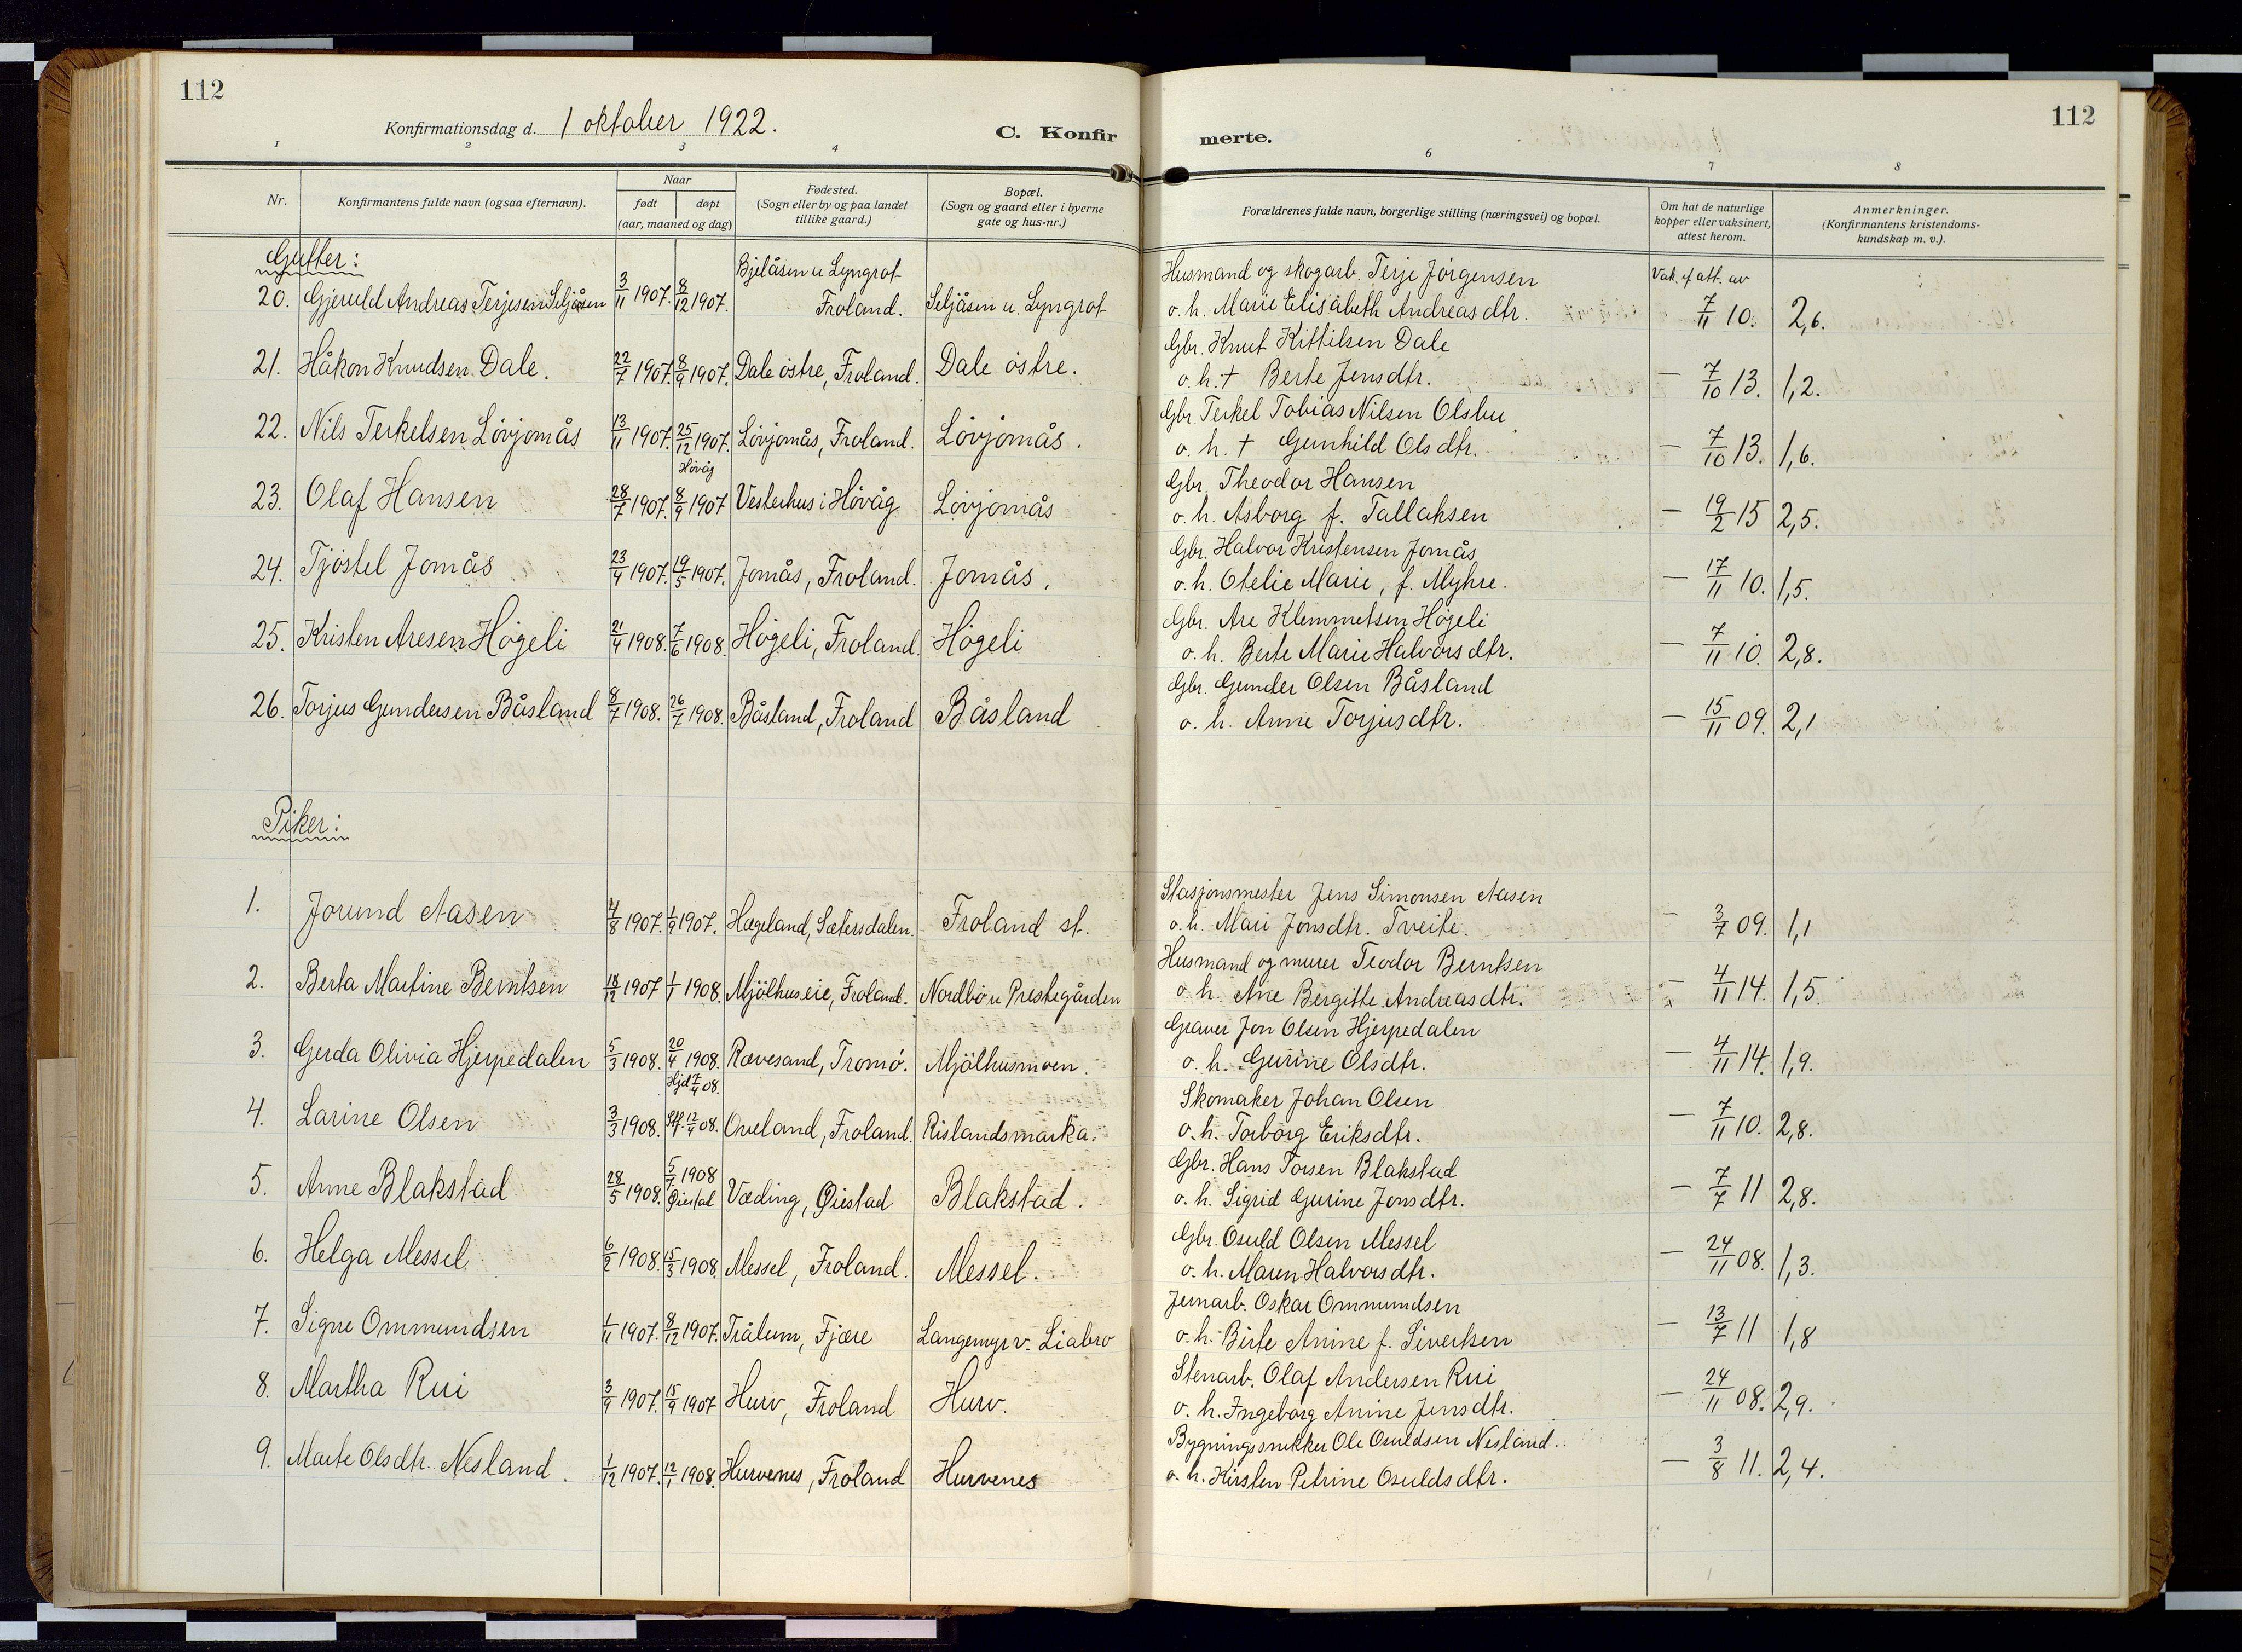 112
Konfirmationsdag d. 1 oktober 1922.
C. Konfir
merte.
112
1 2 3 4 6 7 8
Nr.
Konfirmantens fulde navn (ogsaa efternavn).
Naar
født døpt
(aar, maaned og dag)
Fødested.
(Sogn eller by og paa landet
tillike gaard.)
Bopæl.
(Sogn og gaard eller i byerne
gate og hus-nr.)
Forældrenes fulde navn, borgerlige stilling (næringsvei) og bopæl.
Om hat de naturlige
kopper eller vaksinert,
attest herom.
Anmerkninger.
(Konfirmantens kristendoms-
kundskap m. v.).
Gutter:
Bjelåsen u Lyngrot
Husmand og skogarb. Terje Jörgensen
Vak. ef att. av
20. Gjeruld Andreas Terjesen Seljåsen 3/11 1907. 8/12 1907. Froland. Seljåsen u. Lyngrot o. h. Marie Elisabeth Andreasdtr. 7/11 10. 2,6.
Gbr. Knut Kittilsen Dale
21. Håkon Knudsen Dale. 22/7 1907. 8/9 1907. Dale östre, Froland. Dale östre. o. h. † Berte Jensdtr. — 7/10 13. 1,2.
Gbr. Terkel Tobias Nilsen Olsbu
22. Nils Terkelsen Lövjomås 13/11 1907. 25/12 1907. Lövjomås, Froland. Lövjomås. o. h. † Gunhild Olsdtr. — 7/10 13. 1,6.
Hövåg
Gbr. Theodor Hansen
23. Olaf Hansen 28/7 1907. 8/9 1907 Vesterhus i Hövåg Lövjomås o. h. Asborg f. Tallaksen — 19/2 15 2,5.
Gbr. Halvor Kristensen Jomås
24. Tjöstel Jomås 23/4 1907. 19/5 1907. Jomås, Froland. Jomås. o. h. Otelie Marie, f. Myhre. — 17/11 10. 1,5.
Gbr. Are Klemmetsen Högeli
25. Kristen Aresen Högeli 21/4 1908. 7/6 1908. Högeli, Froland. Högeli o. h. Berte Marie Halvorsdtr. — 7/11 10. 2,8.
Gbr. Gunder Olsen Båsland
26. Torjus Gundersen Båsland 8/7 1908. 26/7 1908. Båsland, Froland Båsland o. h. Anne Torjusdtr. — 15/11 09. 2,1
Piker:
Stasjonsmester Jens Simonsen Aasen
1. Jorund Aasen 4/8 1907. 1/9 1907. Hægeland, Sætersdalen. Froland st. o. h. Mari Jonsdtr. Tveite. — 3/7 09. 1,1
Husmand og murer Teodor Berntsen
2. Berta Martine Berntsen 18/12 1907 1/1 1908. Mjölhuseie, Froland. Nordbö u Prestegården o. h. Ane Bergitte Andreasdtr. — 4/11 14. 1,5.
Graver Jon Olsen Hjerpedalen
3. Gerda Olivia Hjerpedalen 5/3 1908. 20/4 1908. Rævesand, Tromö. Mjölhusmoen. o. h. Gurine Olsdtr. — 4/11 14. 1,9.
Hjd 7/4 08.
Skomaker Johan Olsen
4. Larine Olsen 3/3 1908. 12/4 08. Oveland, Froland. Rislandsmarka. o. h. Torborg Eriksdtr. — 7/11 10. 2,8.
Gbr. Hans Torsen Blakstad
5. Anne Blakstad 28/5 1908. 5/7 1908 Øiestad Væding, Øiestad Blakstad. o. h. Sigrid Gurine Jonsdtr. — 7/7 11 2,8.
Gbr. Osuld Olsen Messel
6. Helga Messel 6/2 1908. 15/3 1908. Messel, Froland. Messel. o. h. Maren Halvorsdtr. — 24/11 08. 1,3.
Jernarb. Oskar Ommundsen
7. Signe Ommundsen 1/11 1907. 8/12 1907. Trålum, Fjære Langemyr v. Liabro o. h. Birte Anine f. Sivertsen — 13/7 11 1,8
Stenarb. Olaf Andersen Rui
8. Martha Rui 3/9 1907. 15/9 1907 Hurv, Froland Hurv. o. h. Ingeborg Anine Jensdtr. — 24/11 08. 2,9.
Bygningssnekker Ole Osuldsen Nesland.
9. Marte Olsdtr. Nesland. 1/12 1907. 12/1 1908. Hurvenes, Froland Hurvenes o. h. Kirsten Petrine Osuldsdtr. — 3/8 11. 2,4.